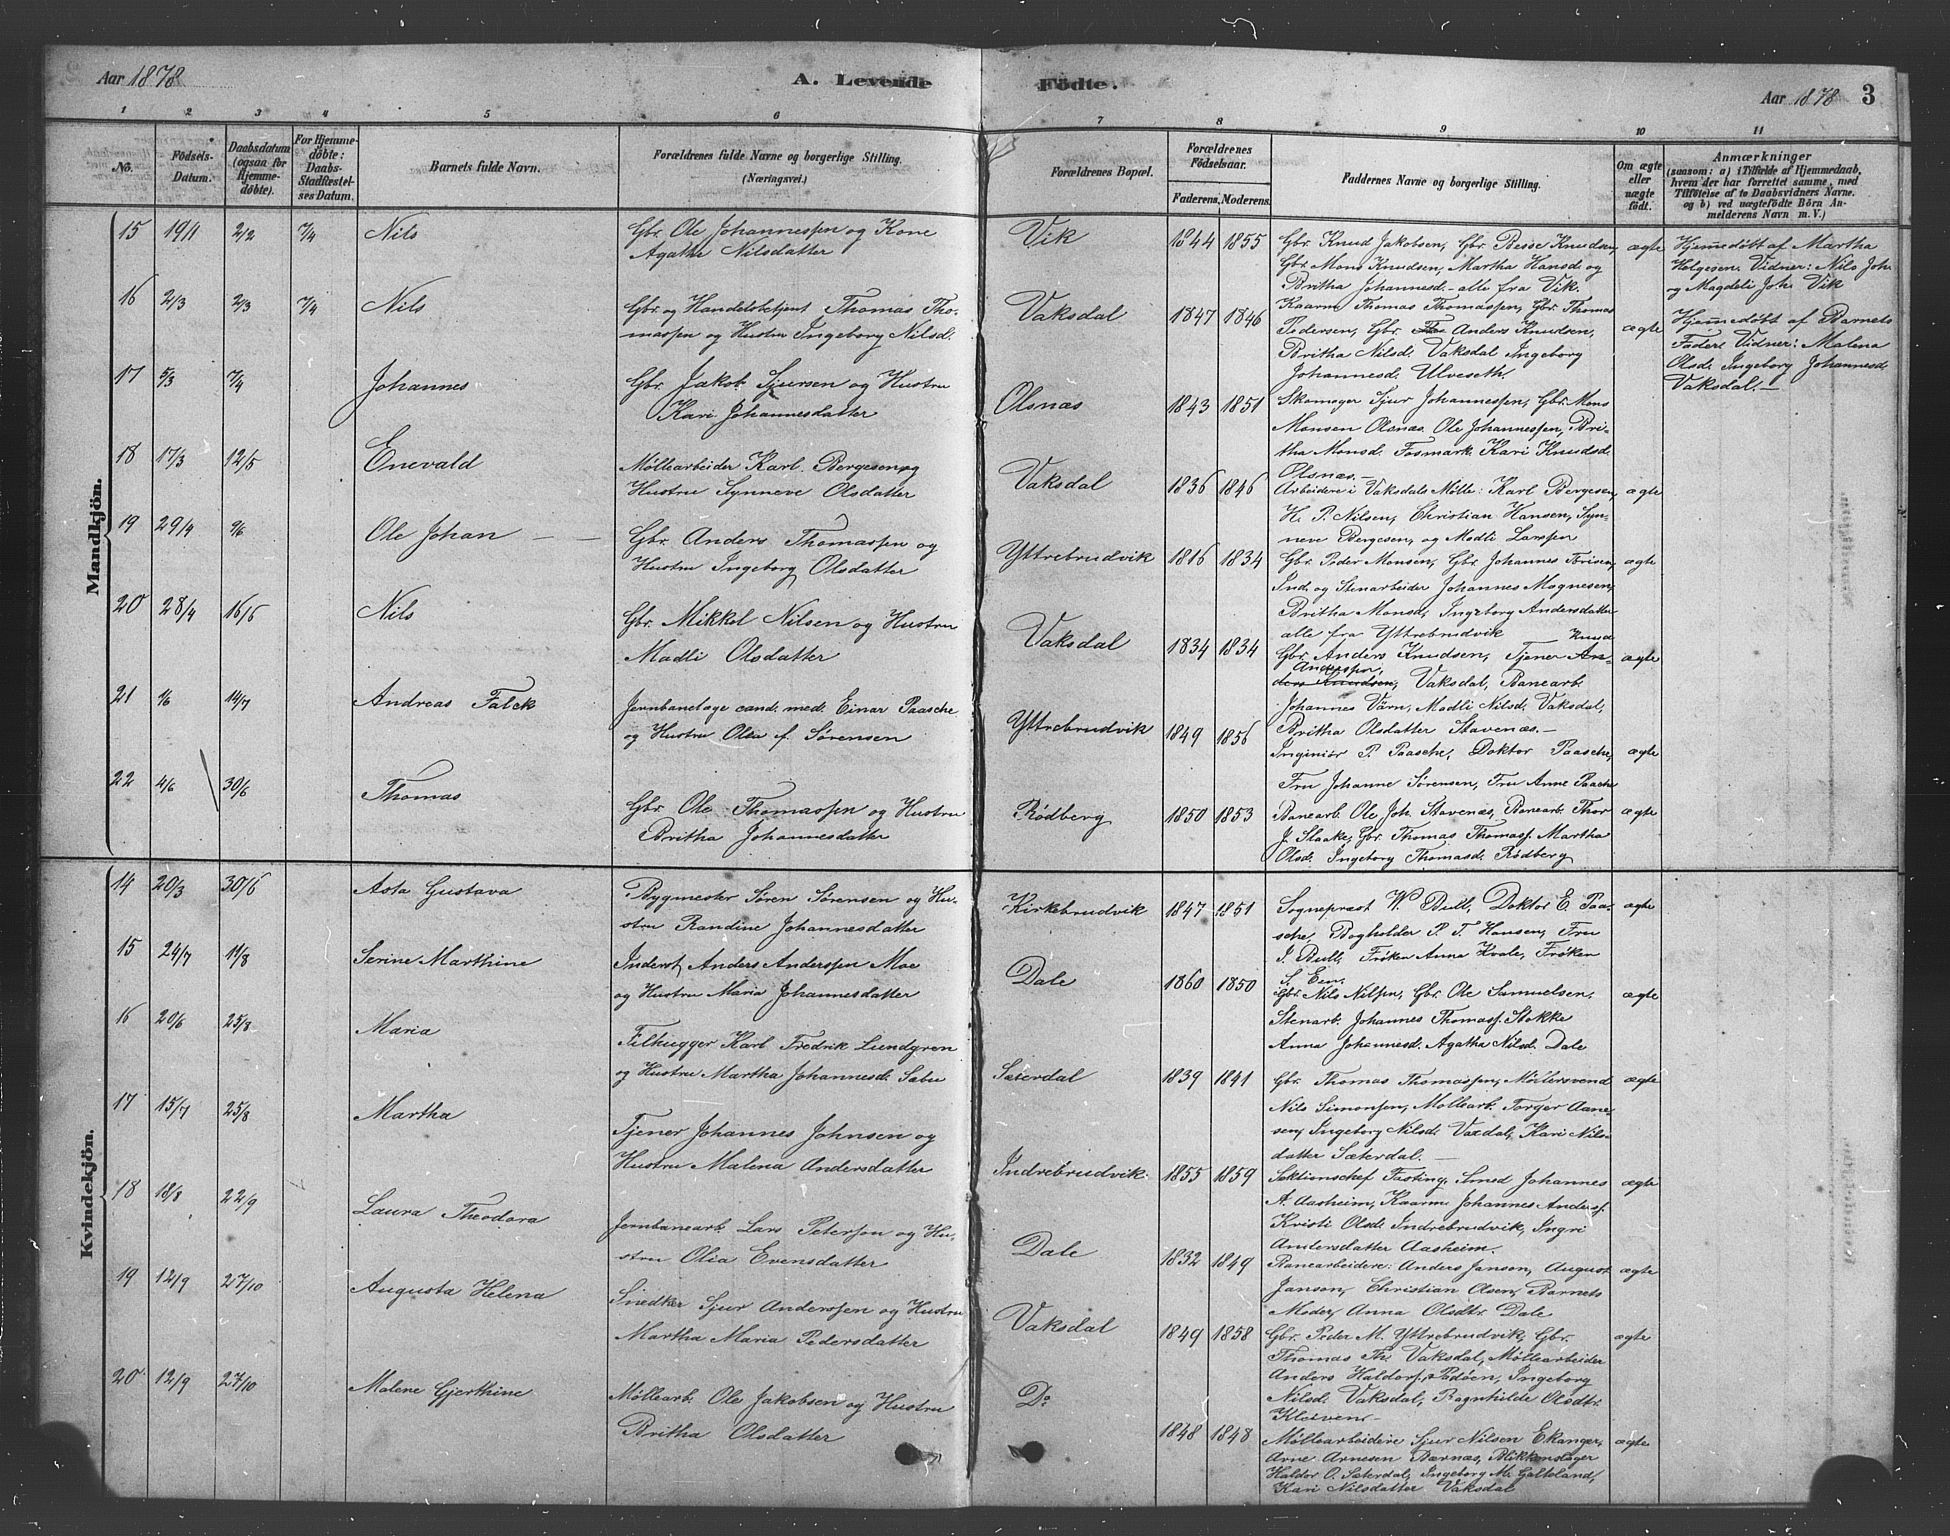 Aar 1878
A. Levende Födte.
Aar 1878 3
1 2 3 4 5 6 7 8 9 10 11
No.
Födsels-
Datum.
Daabsdatum
(ogsaa for
Hjemme-
döbte).
For Hjemme-
döbte:
Daabs-
Stadfæstel-
ses Datum.
Barnets fulde Navn.
Forældrenes fulde Navne og borgerlige Stilling.
(Næringsvei.)
Forældrenes Bopæl.
Forældrenes
Födselsaar.
Faderens. Moderens.
Faddernes Navne og borgerlige Stilling.
Om ægte
eller
uægte
födt.
Anmærkninger
(saasom: a) i Tilfælde af Hjemmedaab,
hvem der har forrettet samme, med
Tilföielse af to Daabsvidners Navne.
og b) ved uægtefödte Börn An-
melderens Navn m. V.)
Mandkjön.
15 19/1 2/2 7/4 Nils
Gbr. Ole Johannessen og Kone
Agatha Nilsdatter
Vik 1844 1855
Gbr. Knud Jakobsen, Gbr. Besse Knudsen,
Gbr. Mons Knudsen, Martha Hansd. og
Britha Johannesd. alle fra Vik.
ægte
Hjemmedøbt af Martha
Helgesen. Vidner: Nils Joh.
og Magdeli Joh. Vik
16 2/3 2/3 7/4 Nils
Gbr. og Handelsbetjent Thomas Tho-
massen og Hustru Ingeborg Nilsd.
Vaksdal 1847 1846
Kaarm. Thomas Thomassen, Gbr. Thomas
Pedersen, Gbr. Anders Knudsen,
Britha Nilsd. Vaksdal Ingeborg
Johannesd. Ulveseth.
ægte
Hjemmedøbt af Barnets
Fader. Vidner: Malena
Olsd. Ingeborg Johannesd.
Vaksdal.
17 5/3 7/4 Johannes
Gbr. Jakob Sjursen og Hustru
Kari Johannesdatter
Olsnæs 1843 1851
Skomager Sjur Johannessen, Gbr. Mons
Monsen Olsnæs. Ole Johannessen, Bri-
tha Monsd. Fosmark. Kari Knudsd.
Olsnæs.
18 17/3 12/5 Enevald
Møllearbeider Karl Bergesen og
Hustru Synneve Olsdatter
Vaksdal 1836 1846
Arbeidere i Vaksdals Mølle: Karl Bergesen,
H. P. Nilsen, Christian Hansen, Syn-
neve Bergesen, og Madli Larssen
ægte
19 29/4 9/6 Ole Johan
Gbr. Anders Thomassen og
Hustru Ingeborg Olsdatter
Yttrebrudvik 1816 1834
Gbr. Peder Monsen, Gbr. Johannes
Ind. og Stenarbeider Johannes Magnesen,
Britha Monsd, Ingeborg Andersdatter
alle fra Yttrebrudvik
ægte
20 28/4 16/6 Nils
Gbr. Mikkel Nilsen og Hustru
Madli Olsdatter
Vaksdal 1834 1834
Knud
Gbr. Anders Knudsen, Tjener An-
Anderssen,
ders Knudsen, Vaksdal, Banearb.
Johannes Värn, Madli Nilsd. Vaksdal,
Britha Olsdatter Stavenæs.
ægte
21 1/6 14/7 Andreas Falck
Jernbanelæge cand. med. Einar Paasche
og Hustru Olea f. Sørensen
Yttrebrudvik 1849 1856
Ingeniør P. Paasche, Doktor Paasche,
Fru Johanne Sørensen, Fru Anne Paasche
ægte
22 4/6 30/6 Thomas
Gbr. Ole Thomassen og Hustru
Britha Johannesdatter
Rødberg 1850 1853
Banearb. Ole Joh. Stavenæs, Banearb. Thor
J. Slaake, Gbr. Thomas Thomass. Martha
Olsd. Ingeborg Thomasd. Rødberg
ægte
Kvindekjön.
14 20/3 30/6 Asta Gustava
Bygmester Søren Sørensen og Hu-
stru Randine Johannesdatter
Kirkebrudvik 1847 1851
Sognepræst W. Bull, Doktor E. Paa-
sche, Bogholder P. T. Hansen, Fru
J. Bull, Frøken Anna Kvale, Frøken
S. Een.
ægte
15 24/7 11/8 Serine Marthine
Inderst Anders Anderssen Moe
og Hustru Maria Johannesdatter
Dale 1860 1850
Gbr. Nils Nilsen, Gbr. Ole Samuelsen,
Stenarb. Johannes Thomass. Stokke
Anna Johannesd. Agatha Nilsd. Dale
ægte
16 20/6 25/8 Maria
Filhugger Karl Fredrik Lundgren
og Hustru Martha Johannesd. Sabu
Sæterdal 1839 1841
Gbr. Thomas Thomassen, Møllersvend
Nils Simonsen, Møllearb. Torger Aane-
sen, Ingeborg Nilsd. Vaxdal, Kari Nils-
datter Sæterdal.
ægte
17 15/7 25/8 Martha
Tjener Johannes Johnsen og
Hustru Malena Andersdatter
Indrebrudvik. 1855 1859
Sektionschef Fasting, Smed Johannes
A. Aasheim, Kaarm. Johannes Anderss.
Kristi Olsd. Indrebrudvik, Ingri
Andersdatter Aasheim.
ægte
18 18/8 22/9 Laura Theodora
Jernbanearb. Lars Peterson og Hu-
stru Olia Evensdatter
Dale 1832 1849
Banearbeidere: Anders Janson, August
Janson, Christian Olsen, Barnets
Moder, Anna Olsdtr. Dale
ægte
19 12/9 27/10 Augusta Helena
Snedker Sjur Anderssen og Hustru
Martha Maria Pedersdatter
Vaksdal 1849 1858
Gbr. Peder M. Yttrebrudvik, Gbr.
Thomas Th. Vaksdal, Møllearbeider
Anders Haldors. Ingeborg
Nilsd. Vaksdal, Ragnhilde Olsdtr.
Kleiven
ægte
20 12/9 27/10 Malene Gjerthine
Møllearb. Ole Jakobsen og Hustru
Britha Olsdatter
Do. 1848 1848
Møllearbeidere Sjur Nilsen Ekanger,
Arne Arnesen Bærnæs, Blikkenslager
Haldor O. Sæterdal, Ingeborg M. Galteland,
Kari Nilsdatter Vaksdal
ægte